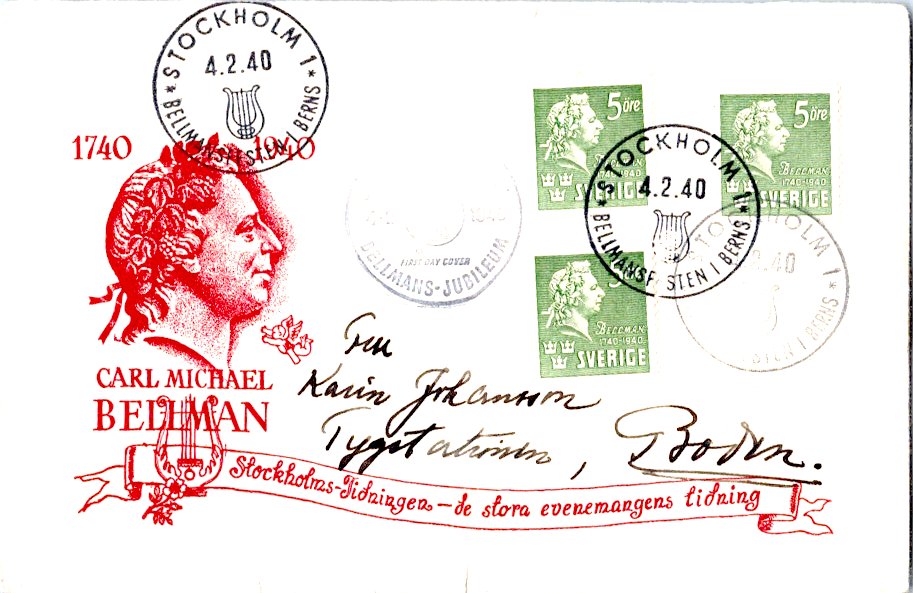 STOCKHOLM 1
4.2.40
*BELLMANSFESTEN I BERNS*
1740 1940
CARL MICHAEL
BELLMAN
Stockholms-Tidningen – de stora evenemangens tidning
1940
FIRST DAY COVER
BELLMANS-JUBILEUM
5 öre
BELLMAN
1740-1940
SVERIGE
5 öre
BELLMAN
1740-1940
SVERIGE
BELLMAN
1740-1940
SVERIGE
STOCKHOLM 1
4.2.40
*BELLMANSFESTEN I BERNS*
STOCKHOLM 1
.40
STEN I BERNS*
Fru
Karin Johansson
Tygstationen, Boden.